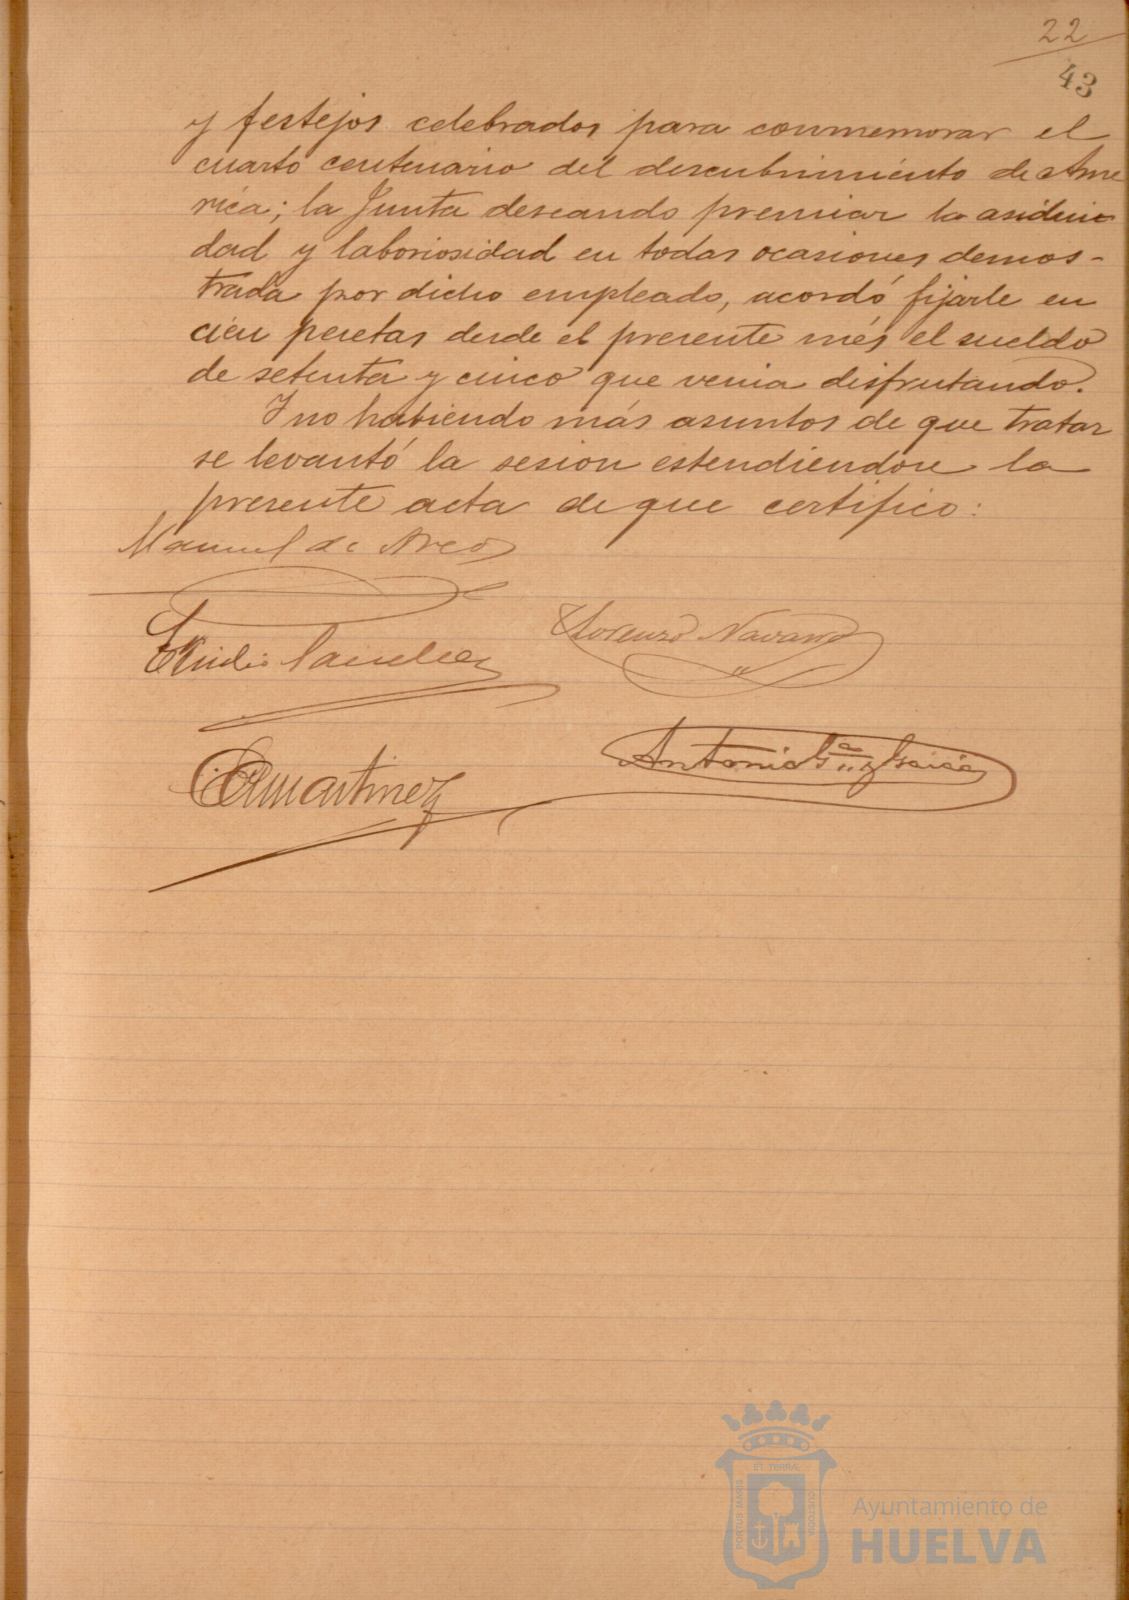 22
43
y festejos celebrados para conmemorar el
cuarto centenario del descubrimiento de Ame
rica; la Junta deseando premiar la asidui
dad y laboriosidad en todas ocasiones demos-
trada por dicho empleado, acordó fijarle en
cien pesetas desde el presente més el sueldo
de setenta y cinco que venia disfrutando.
Y no habiendo más asuntos de que tratar
se levantó la sesion estendiendose la
presente acta de que certifico:
Manuel de
Emilio
Lorenzo Navarro
Martinez
Antonio Gª y García
PORTUS MARIS
ET TERRAE
CUSTODIA
Ayuntamiento de
HUELVA